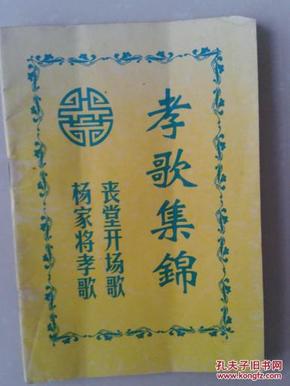 孝歌集錦
丧堂开场歌
杨家将孝歌
孔夫子旧书网